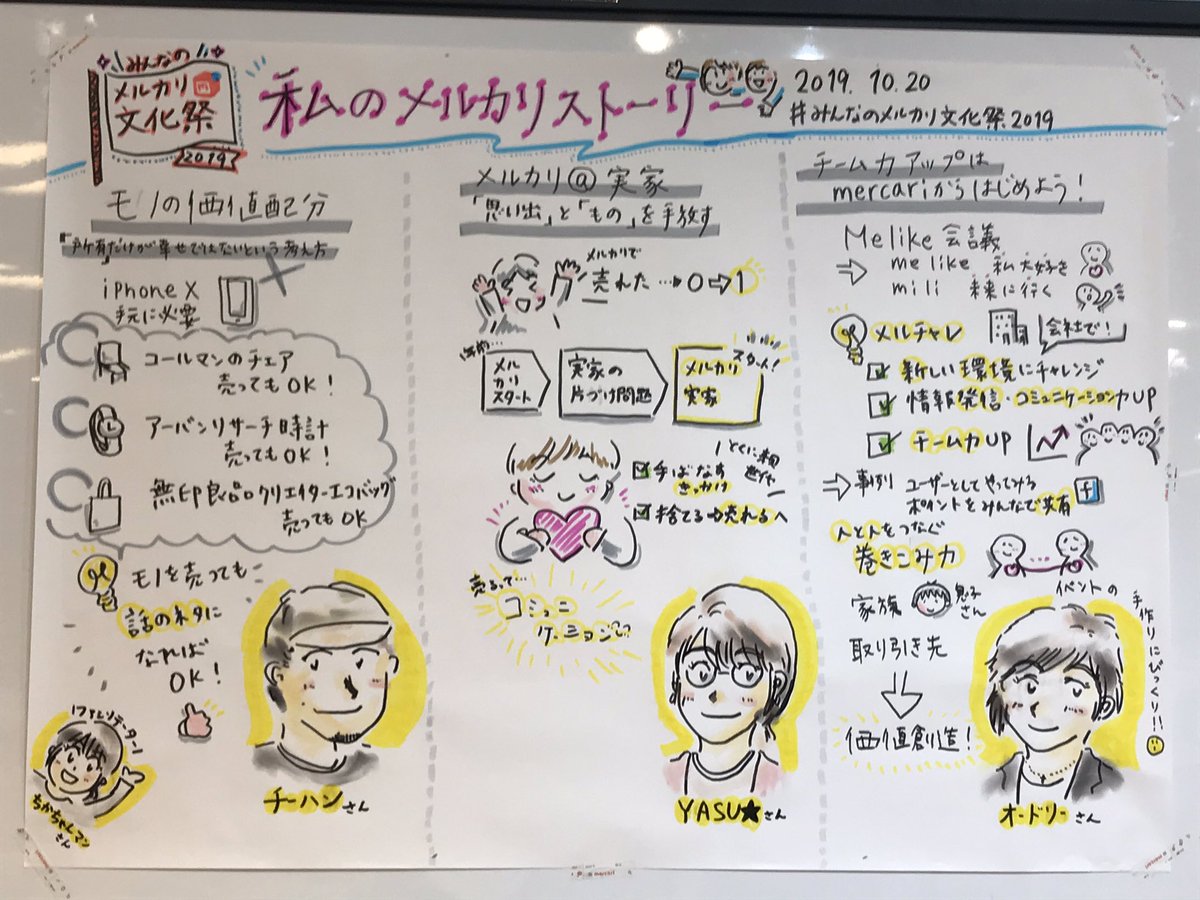 みんなの
メルカリ
文化祭
2019
私のメルカリストーリー
2019.10.20
#みんなのメルカリ文化祭2019
モノの価値配分
「所有」だけが幸せではないという考え方
iPhone X
手元に必要
コールマンのチェア
売ってもOK！
アーバンリサーチ時計
売ってもOK！
無印良品クリエイターエコバッグ
売ってもOK
モノを売っても
話のネタに
なれば
OK！
ファシリテーター
ちかちゃんマン
さん
チーハンさん
メルカリ@実家
「思い出」と「もの」を手放す
メルカリで
売れた…→0⇨1
1年前…
メル
カリ
スタート
実家の
片づけ問題
メルカリ
実家
スタート！
とくに親
世代
手ばなす
きっかけ
捨てる→売れるへ
売るって…
コミュニ
ケーション
YASU★さん
チーム力アップは
mercariからはじめよう！
Me like 会議
⇨ me like 私大好き
mili 未来に行く
メルチャレ
会社で！
新しい環境にチャレンジ
情報発信・コミュニケーション力UP
チーム力UP
⇨事例 ユーザーとしてやってみる
ポイントをみんなで共有
f
人と人をつなぐ
巻きこみ力
家族 息子
さん
取り引き先
価値創造！
イベントの
手作りにびっくり!!
オードリーさん
mercari